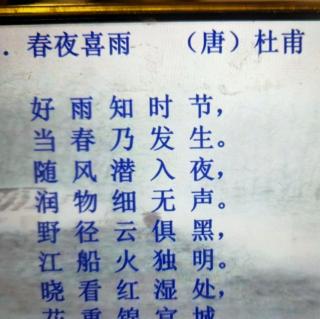 ．春夜喜雨 （唐）杜甫
好雨知时节，
当春乃发生。
随风潜入夜，
润物细无声。
野径云俱黑，
江船火独明。
晓看红湿处，
花重锦官城